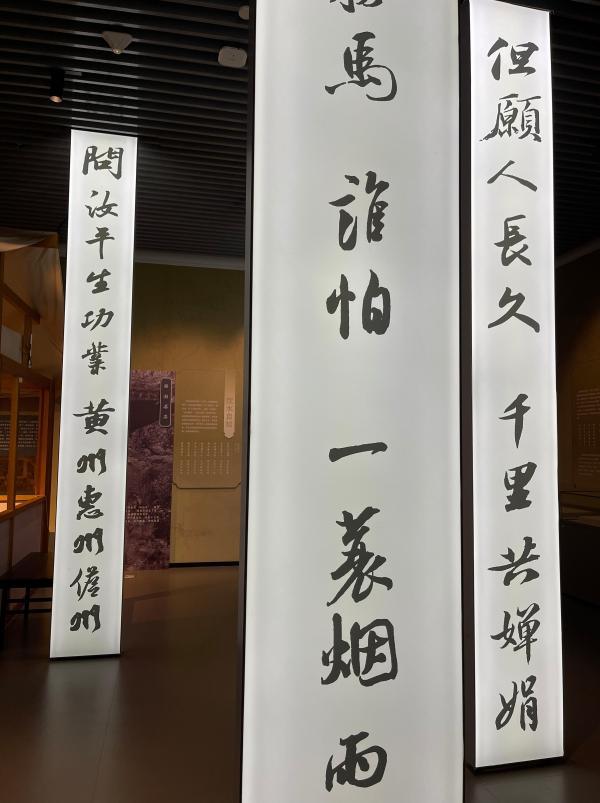 但願人長久 千里共嬋娟
馬 誰怕 一蓑烟雨
問汝平生功業 黄州惠州儋州